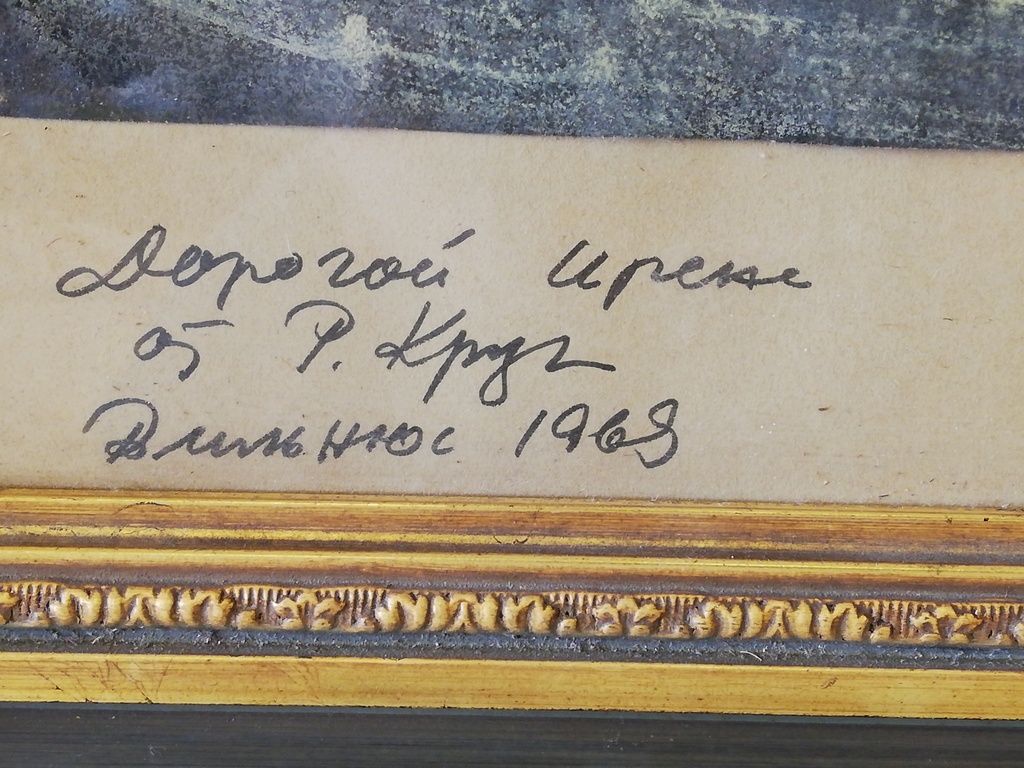 Дорогой Ирене
от Р. Круг
Вильнюс 1969